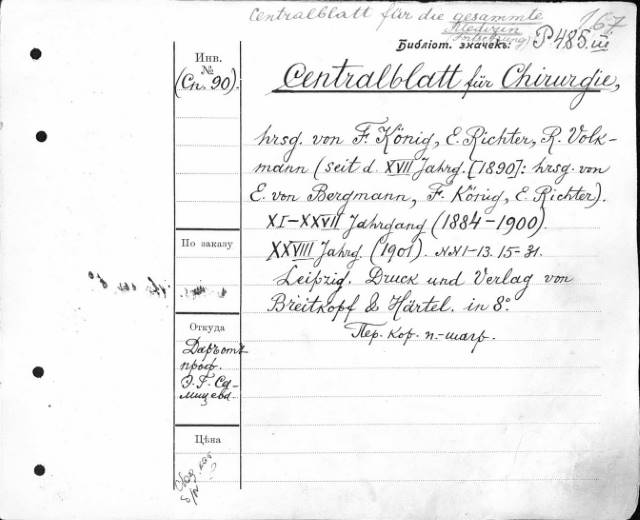 Centralblatt für die gesammte
Medizin
167
Библіот. значекъ: P 485.III
Инв.
№
(Сп. 90).
Centralblatt für Chirurgie,
hrsg. von F. König, E. Richter, R. Volk-
mann (seit d. XVII Jahrg. [1890]: hrsg. von
E. von Bergmann, F. König, E. Richter).
XI–XXVII Jahrgang (1884–1900).
XXVIII Jahrg. (1901). NN 1-13. 15-31.
Leipzig. Druck und Verlag von
Breitkopf & Härtel. in 8°.
Пер. кор. п.-шагр.
По заказу
Откуда
Даръ отъ
проф.
Цѣна